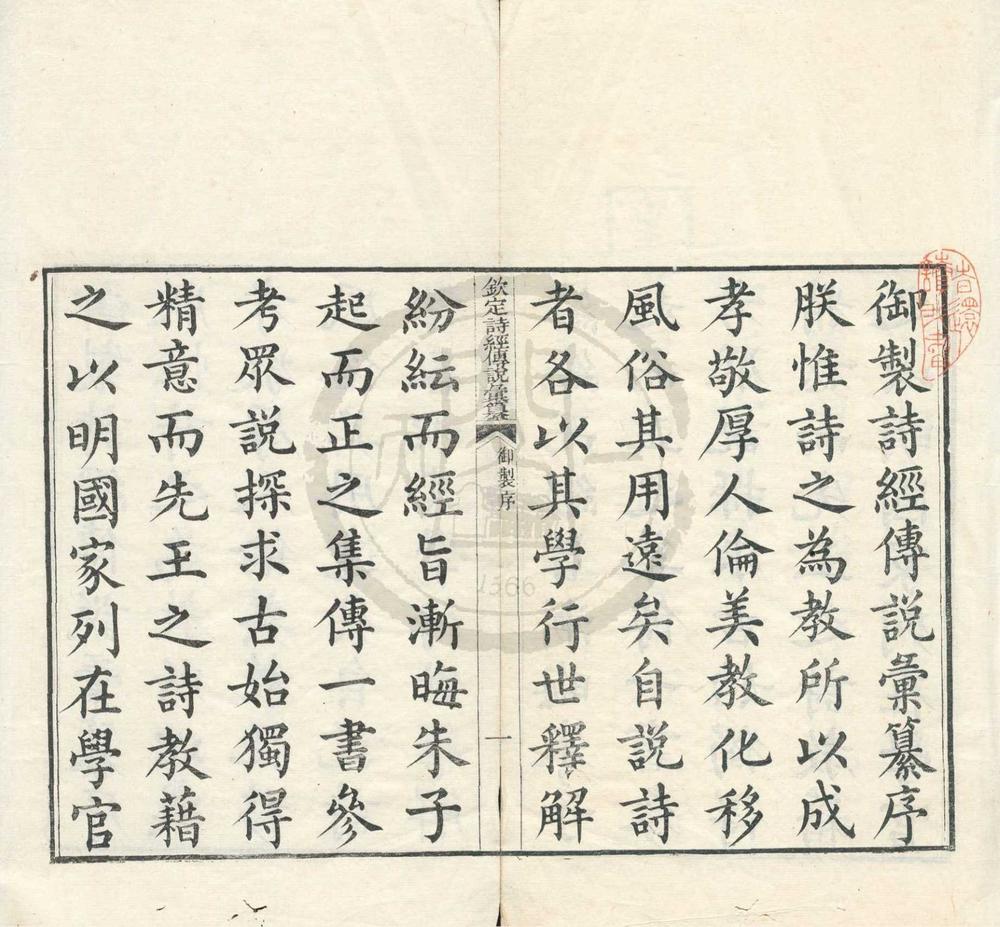 御製詩經傳說彙纂序
朕惟詩之為教所以成
孝敬厚人倫美教化移
風俗其用遠矣自說詩
者各以其學行世釋解
欽定詩經傳說彙纂
御製序
一
紛紜而經旨漸晦朱子
起而正之集傳一書參
考眾說探求古始獨得
精意而先王之詩教藉
之以明國家列在學官
1366